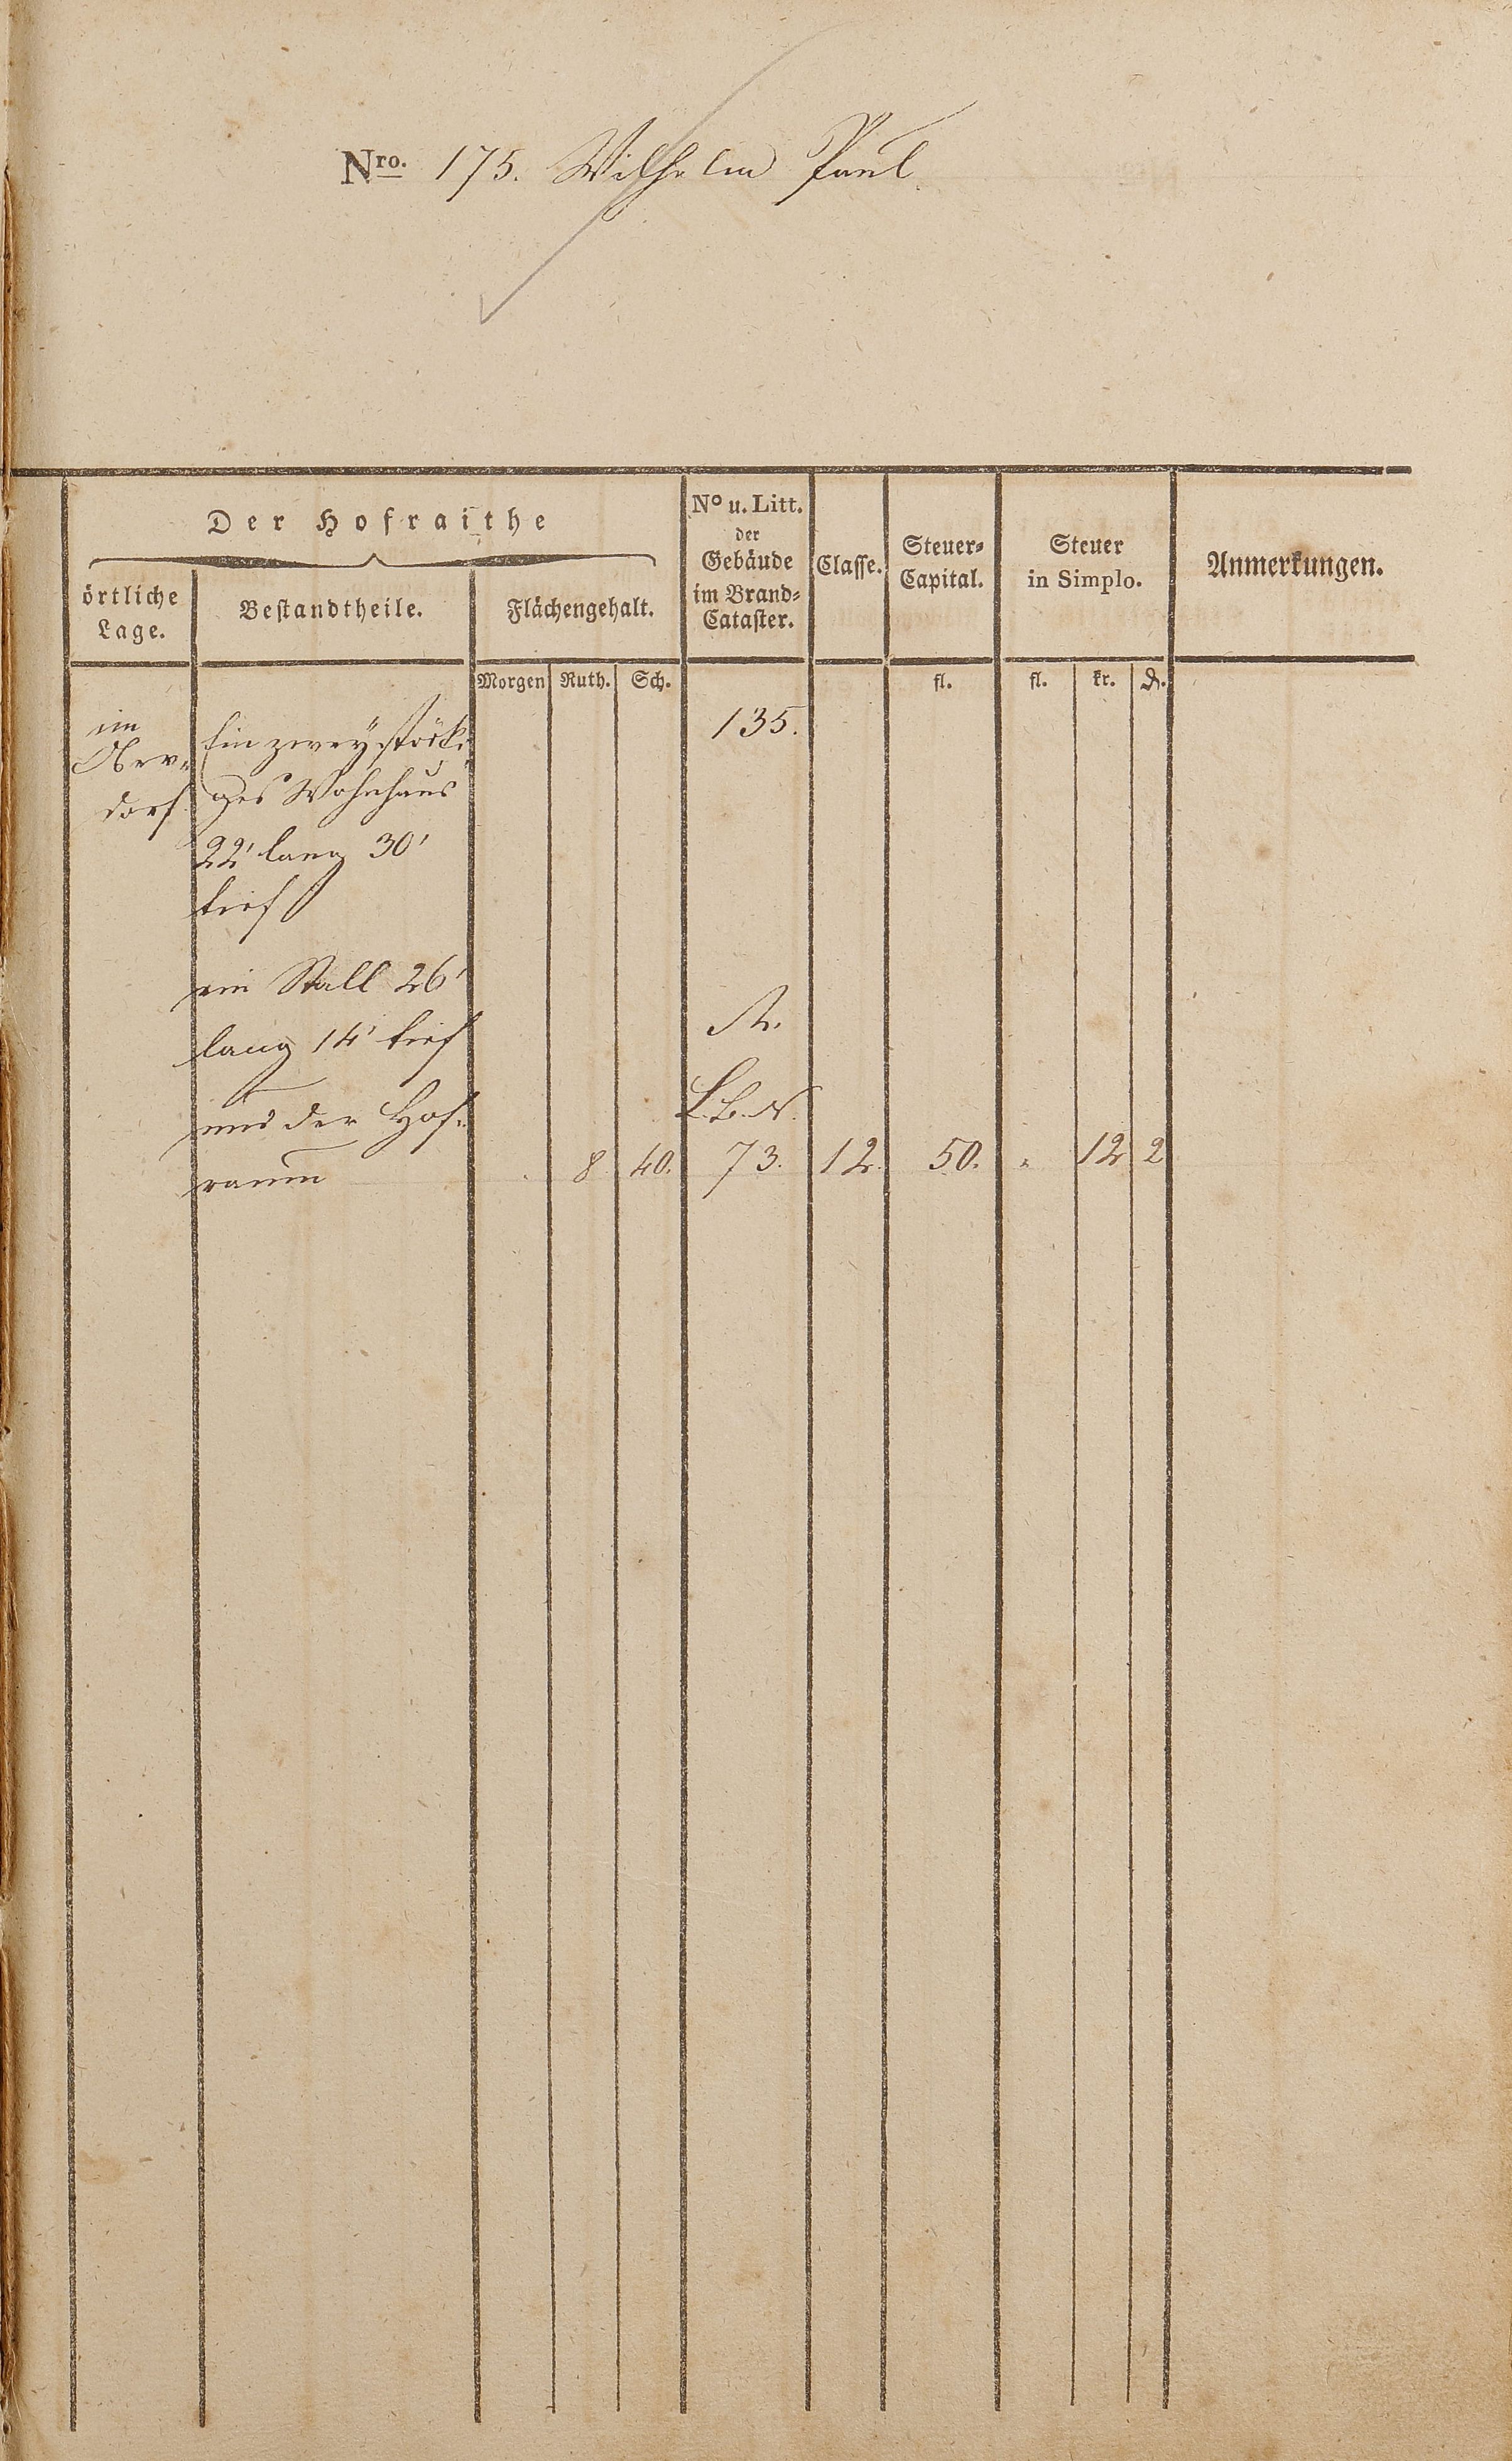 Nro. 175. Wilhelm Paul.
Der Hofraithe
örtliche
Lage.
Bestandtheile.
Flächengehalt.
No u. Litt.
der
Gebäude
im Brand-
Cataster.
Classe.
Steuer-
Capital.
Steuer
in Simplo.
Anmerkungen.
Morgen Ruth. Sch. fl. fl. kr. ₰.
im
Ober-
dorf
Ein zweystöcki-
ges Wohnhaus
22' lang 30'
tief
135.
ein Stall 26'
lang 14' tief
A.
und der Hof-
L. B. N.
raum 8 40. 73. 12. 50. " 12 2